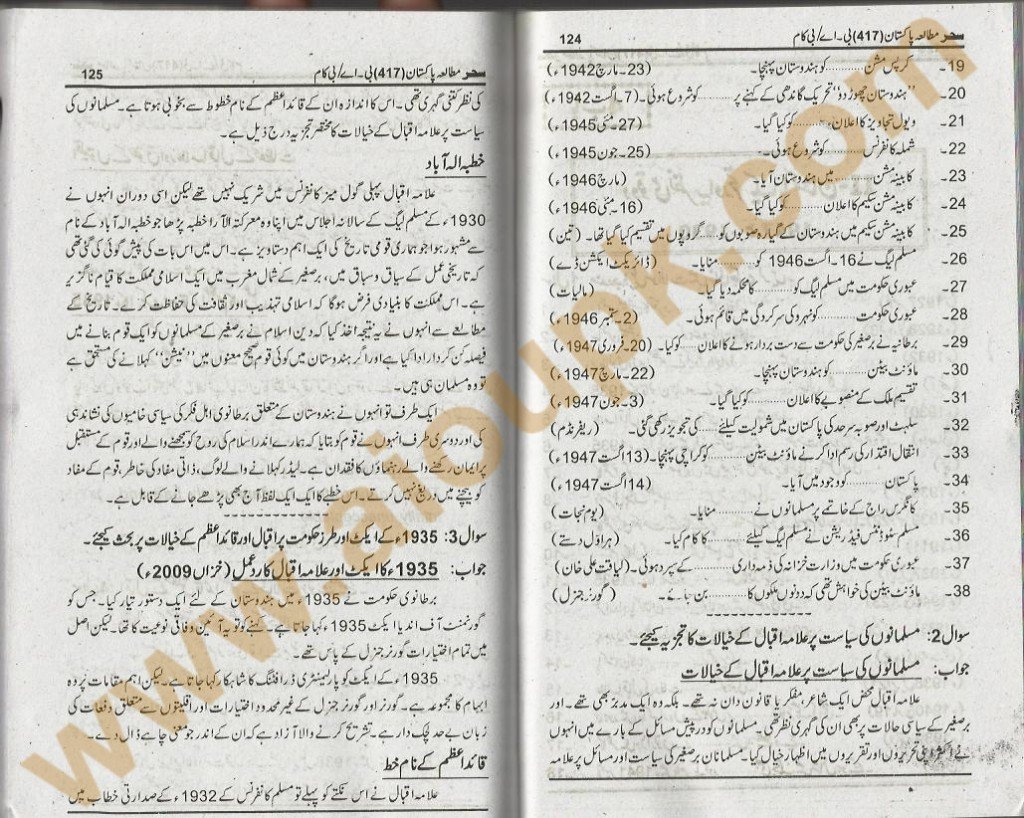 سحر مطالعہ پاکستان (417) بی۔اے/بی کام 124
19۔ کرپس مشن .......... کو ہندوستان پہنچا۔ (23۔مارچ 1942ء)
20۔ ’’ہندوستان چھوڑ دو‘‘ تحریک گاندھی کے کہنے پر .......... کو شروع ہوئی۔ (7۔اگست 1942ء)
21۔ ویول تجاویز کا اعلان .......... کو کیا گیا۔ (27۔مئی 1945ء)
22۔ شملہ کانفرنس .......... کو شروع ہوئی۔ (25۔جون 1945ء)
23۔ کابینہ مشن .......... میں ہندوستان آیا۔ (مارچ 1946ء)
24۔ کابینہ مشن سکیم کا اعلان .......... کو کیا گیا۔ (16۔مئی 1946ء)
25۔ کابینہ مشن سکیم میں ہندوستان کے گیارہ صوبوں کو .......... گروپوں میں تقسیم کیا گیا تھا۔ (تین)
26۔ مسلم لیگ نے 16۔اگست 1946 کو .......... منایا۔ (ڈائریکٹ ایکشن ڈے)
27۔ عبوری حکومت میں مسلم لیگ کو .......... کا محکمہ دیا گیا۔ (مالیات)
28۔ عبوری حکومت .......... کو نہرو کی سرکردگی میں قائم ہوئی۔ (2۔ستمبر 1946ء)
29۔ برطانیہ نے برصغیر کی حکومت سے دست بردار ہونے کا اعلان .......... کو کیا۔ (20۔فروری 1947ء)
30۔ ماؤنٹ بیٹن .......... کو ہندوستان پہنچا۔ (22۔مارچ 1947ء)
31۔ تقسیم ملک کے منصوبے کا اعلان .......... کو کیا گیا۔ (3۔جون 1947ء)
32۔ سلہٹ اور صوبہ سرحد کی پاکستان میں شمولیت کیلئے .......... کی تجویز رکھی گئی۔ (ریفرنڈم)
33۔ انتقال اقتدار کی رسم ادا کرنے ماؤنٹ بیٹن .......... کو کراچی پہنچا۔ (13 اگست 1947ء)
34۔ پاکستان .......... کو وجود میں آیا۔ (14 اگست 1947ء)
35۔ کانگرس راج کے خاتمے پر مسلمانوں نے .......... منایا۔ (یوم نجات)
36۔ مسلم سٹوڈنٹس فیڈریشن نے مسلم لیگ کیلئے .......... کا کام کیا۔ (ہراول دستے)
37۔ عبوری حکومت میں وزارت خزانہ کی ذمہ داری .......... کے سپرد ہوئی۔ (لیاقت علی خان)
38۔ ماؤنٹ بیٹن کی خواہش تھی کہ دونوں ملکوں کا .......... بن جائے۔ (گورنر جنرل)
سوال 2: مسلمانوں کی سیاست پر علامہ اقبال کے خیالات کا تجزیہ کیجئے۔
جواب: مسلمانوں کی سیاست پر علامہ اقبال کے خیالات
علامہ اقبال محض ایک شاعر، مفکر یا قانون دان نہ تھے۔ بلکہ وہ ایک مدبر بھی تھے۔ اور
برصغیر کے سیاسی حالات پر بھی ان کی گہری نظر تھی۔ مسلمانوں کو درپیش مسائل کے بارے میں انہوں
نے اکثر اپنی تحریروں اور تقریروں میں اظہار خیال کیا۔ مسلمانان برصغیر کی سیاست اور مسائل پر علامہ
سحر مطالعہ پاکستان (417) بی۔اے/بی کام 125
کی نظر کتنی گہری تھی۔ اس کا اندازہ ان کے قائداعظم کے نام خطوط سے بخوبی ہوتا ہے۔ مسلمانوں کی
سیاست پر علامہ اقبال کے خیالات کا مختصر تجزیہ درج ذیل ہے۔
خطبہ الہ آباد
علامہ اقبال پہلی گول میز کانفرنس میں شریک نہیں تھے لیکن اسی دوران انہوں نے
1930ء کے مسلم لیگ کے سالانہ اجلاس میں اپنا وہ معرکتہ الآرا خطبہ پڑھا جو خطبہ الہ آباد کے نام
سے مشہور ہوا جو ہماری قومی تاریخ کی ایک اہم دستاویز ہے۔ اس میں اس بات کی پیش گوئی کی گئی تھی
کہ تاریخی عمل کے سیاق و سباق میں، برصغیر کے شمال مغرب میں ایک اسلامی مملکت کا قیام ناگزیر
ہے۔ اس مملکت کا بنیادی فرض ہوگا کہ اسلامی تہذیب اور ثقافت کی حفاظت کرے۔ تاریخ کے
مطالعے سے انہوں نے یہ نتیجہ اخذ کیا کہ دین اسلام نے برصغیر کے مسلمانوں کو ایک قوم بنانے میں
فیصلہ کن کردار ادا کیا ہے اور اگر ہندوستان میں کوئی قوم صحیح معنوں میں ’’نیشن‘‘ کہلانے کی مستحق ہے
تو وہ مسلمان ہی ہیں۔
ایک طرف تو انہوں نے ہندوستان کے متعلق برطانوی اہل فکر کی سیاسی خامیوں کی نشاندہی
کی اور دوسری طرف انہوں نے قوم کو بتایا کہ ہمارے اندر اسلام کی روح کو سمجھنے والے اور قوم کے مستقبل
پر ایمان رکھنے والے رہنماؤں کا فقدان ہے۔ لیڈر کہلانے والے لوگ، ذاتی مفاد کی خاطر، قوم کے مفاد
کو بیچنے میں دریغ نہیں کرتے۔ اس خطبے کا ایک ایک لفظ آج بھی پڑھے جانے کے قابل ہے۔
سوال 3: 1935ء کے ایکٹ اور طرز حکومت پر اقبال اور قائداعظم کے خیالات پر بحث کیجئے۔
جواب: 1935ء کا ایکٹ اور علامہ اقبال کا ردعمل (خزاں 2009ء)
برطانوی حکومت نے 1935ء میں ہندوستان کے لئے ایک دستور تیار کیا۔ جس کو
گورنمنٹ آف انڈیا ایکٹ 1935ء کہا جاتا ہے۔ کہنے کو تو یہ آئین وفاقی نوعیت کا تھا۔ لیکن اصل
میں تمام اختیارات گورنر جنرل کے پاس تھے۔
1935ء کے ایکٹ کو پارلیمنٹری ڈرافٹنگ کا شاہکار کہا جاتا ہے۔ لیکن اہم مقامات پر وہ
ابہام کا مجموعہ ہے۔ گورنر اور گورنر جنرل کے غیر محدود اختیارات اور اقلیتوں سے متعلق دفعات کی
زبان بے حد لچک دار ہے۔ تشریح کرنے والا آزاد ہے کہ ان کے اندر جو معنی چاہے ڈال دے۔
قائداعظم کے نام خط
علامہ اقبال نے اس نکتے کو پہلے تو مسلم کانفرنس کے 1932ء کے صدارتی خطاب میں
www.aioupk.com